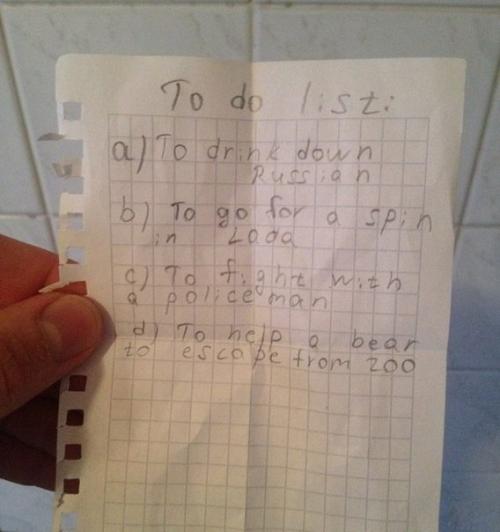 To do list:
a) To drink down
Russian
b) To go for a spin
in Lada
c) To fight with
a policeman
d) To help a bear
to escape from zoo